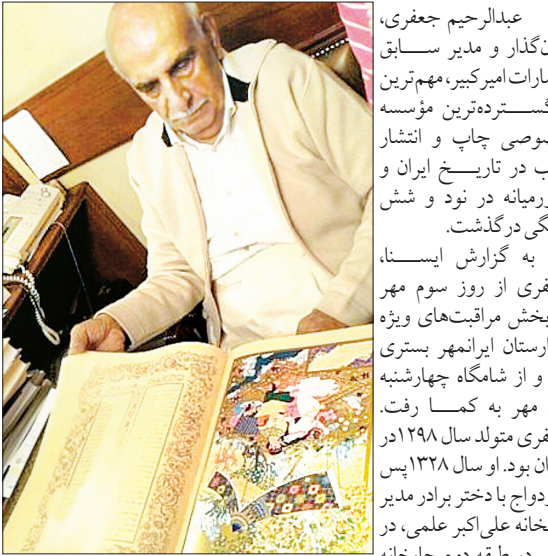 عبدالرحیم جعفری،
ن‌گذار و مدیر ســـابق
سارات امیرکبیر، مهم‌ترین
گســـترده‌ترین مؤسسه
صوصی چاپ و انتشار
ب در تاریـــخ ایران و
ورمیانه در نود و شش
گی درگذشت.
به گزارش ایســـنا،
فری از روز سوم مهر
بخش مراقبت‌های ویژه
ارستان ایرانمهر بستری
و از شامگاه چهارشنبه
مهر به کمـــا رفت.
فری متولد سال ۱۲۹۸در
ان بود. او سال ۱۳۲۸پس
زدواج با دختر برادر مدیر
خانه علی‌اکبر علمی، در